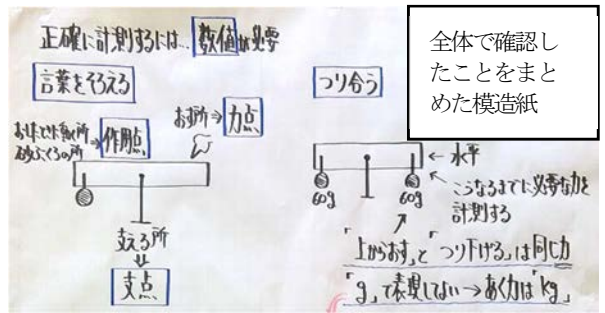 正確に計測するには… 数値が必要
全体で確認し
たことをまと
めた模造紙
言葉をそろえる
おす所⇒力点
作用点
支える所
⇓
支点
つり合う
←水平
60g
60g
こうなるまでに必要な力を
計測する
「上からおす」と「つり下げる」は同じ力
「g」で表現してない→あく力は「kg」